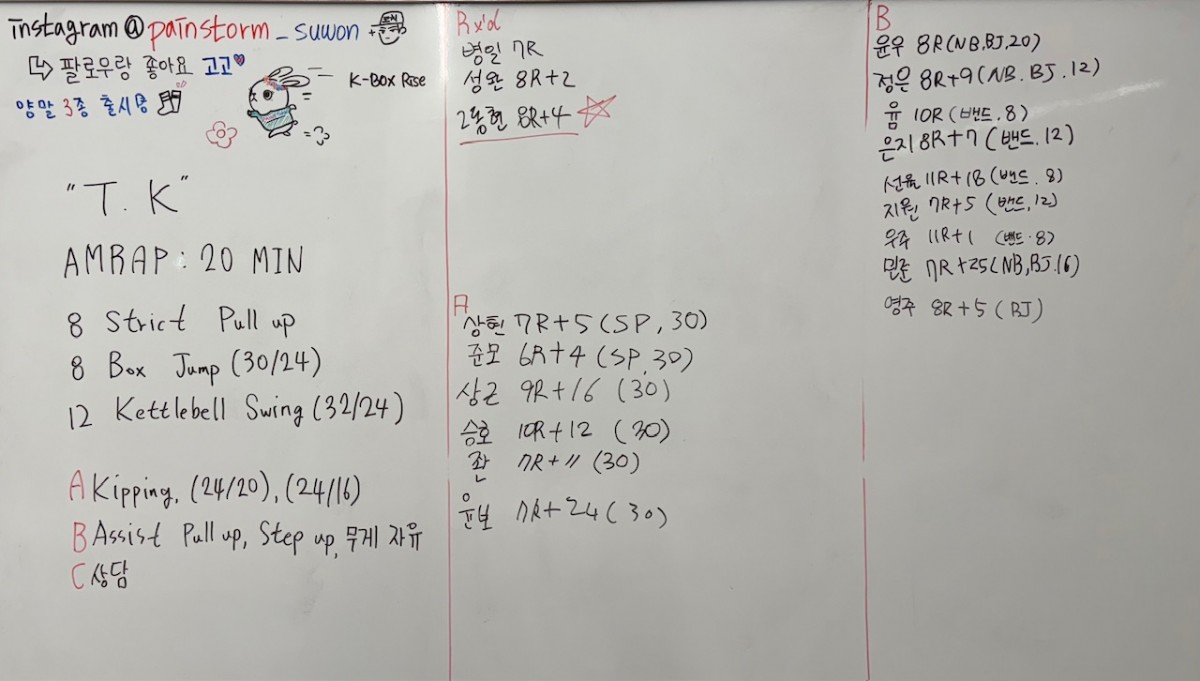 instagram @ painstorm_suwon
↳ 팔로우랑 좋아요 고고♥
양말 3종 출시중
K-BOX Rose
"T.K"
AMRAP: 20 MIN
8 Strict Pull up
8 Box Jump (30/24)
12 Kettlebell Swing (32/24)
A Kipping, (24/20), (24/16)
B Assist Pull up, Step up, 무게 자유
C 상담
Rx'd
병일 7R
성완 8R+2
2동현 8R+4
A
상현 7R+5 (SP, 30)
준모 6R+4 (SP, 30)
상근 9R+16 (30)
승호 10R+12 (30)
좐 7R+11 (30)
윤보 7R+24 (30)
B
윤우 8R (NB, BJ, 20)
정은 8R+9 (NB. BJ. 12)
윰 10R (밴드. 8)
은지 8R+7 (밴드. 12)
선율 11R+18 (밴드. 8)
지원 7R+5 (밴드, 12)
우주 11R+1 (밴드. 8)
민준 7R+25 (NB, BJ. 16)
영주 8R+5 (BJ)